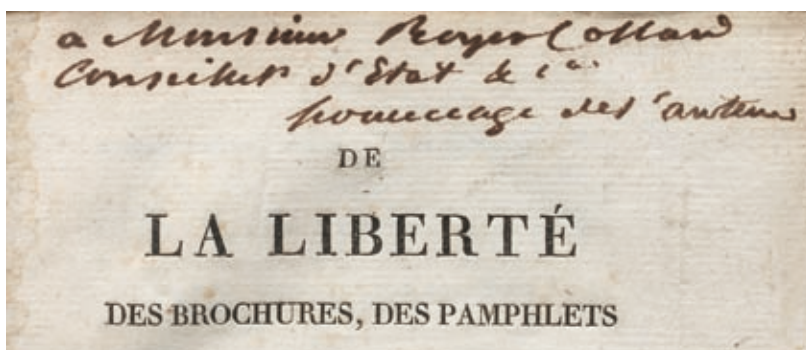 a Monsieur Royer Collard
Conseiller d'Etat &c &c
hommage de l'auteur
DE
LA LIBERTÉ
DES BROCHURES, DES PAMPHLETS